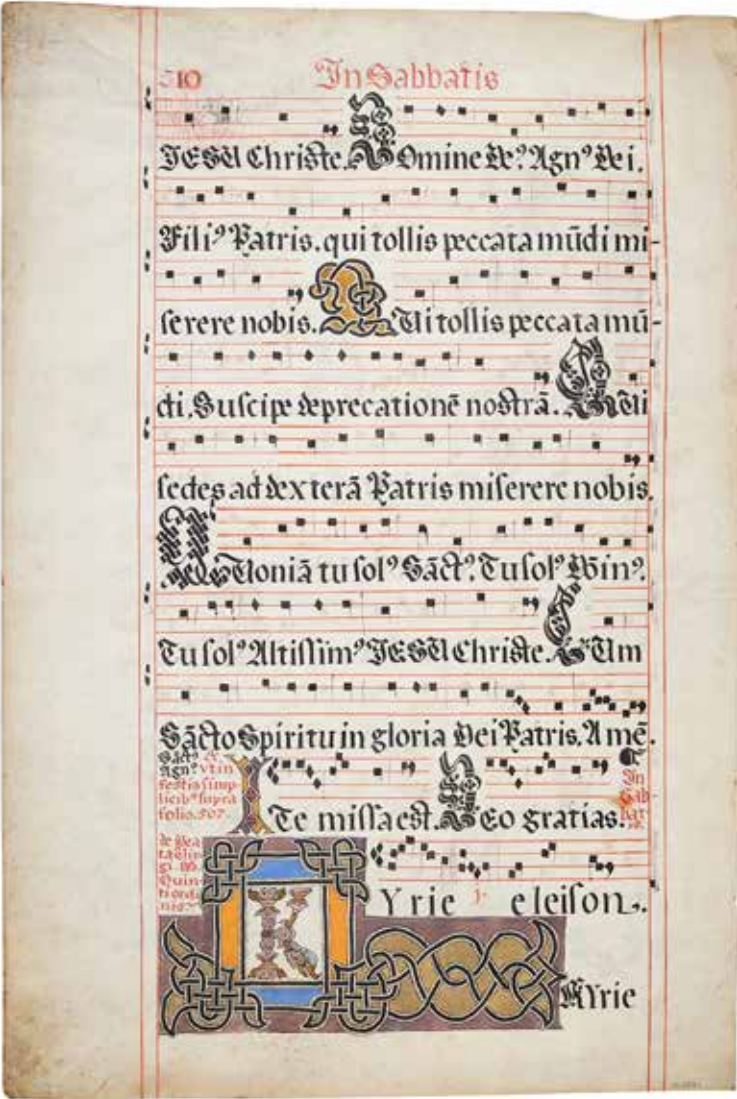 510 In Sabbatis
JESU Christe. Domine De⁹ Agn⁹ Dei.
Fili⁹ Patris. qui tollis peccata mūdi mi-
serere nobis. QUi tollis peccata mū-
di. Suscipe deprecationē nostrā. QUi
sedes ad dexterā Patris miserere nobis.
QUoniā tu sol⁹ Sāct⁹. Tu sol⁹ Dominꝰ.
Tu sol⁹ Altissim⁹ JESU Christe. CUm
Sācto Spiritu in gloria Dei Patris. Amē.
Sāct⁹ &
Agn⁹ vt in
festis simp
licib⁹ supra
folio. 507.
ITe missa est. DEo gratias.
In
Sab
bat
de Bea
ta
Quin
ti
KYrie eleison.
KYrie